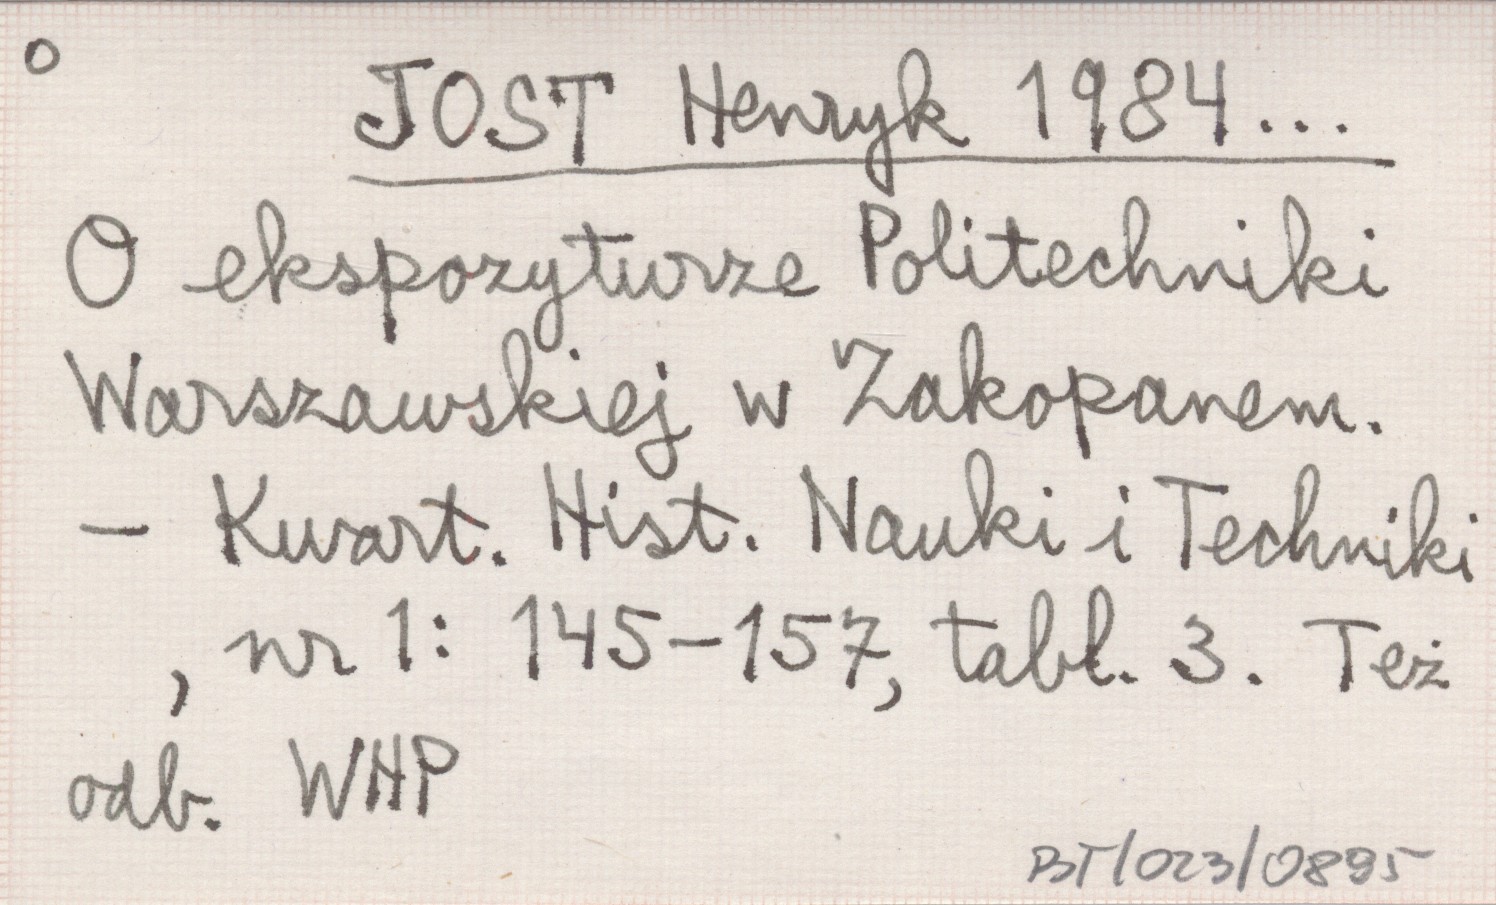 o
JOST Henryk 1984...
O ekspozyturze Politechniki
Warszawskiej w Zakopanem.
- Kwart. Hist. Nauki i Techniki
, nr 1: 145-157, tabl. 3. Też
odb. WHP
BT/023/0895